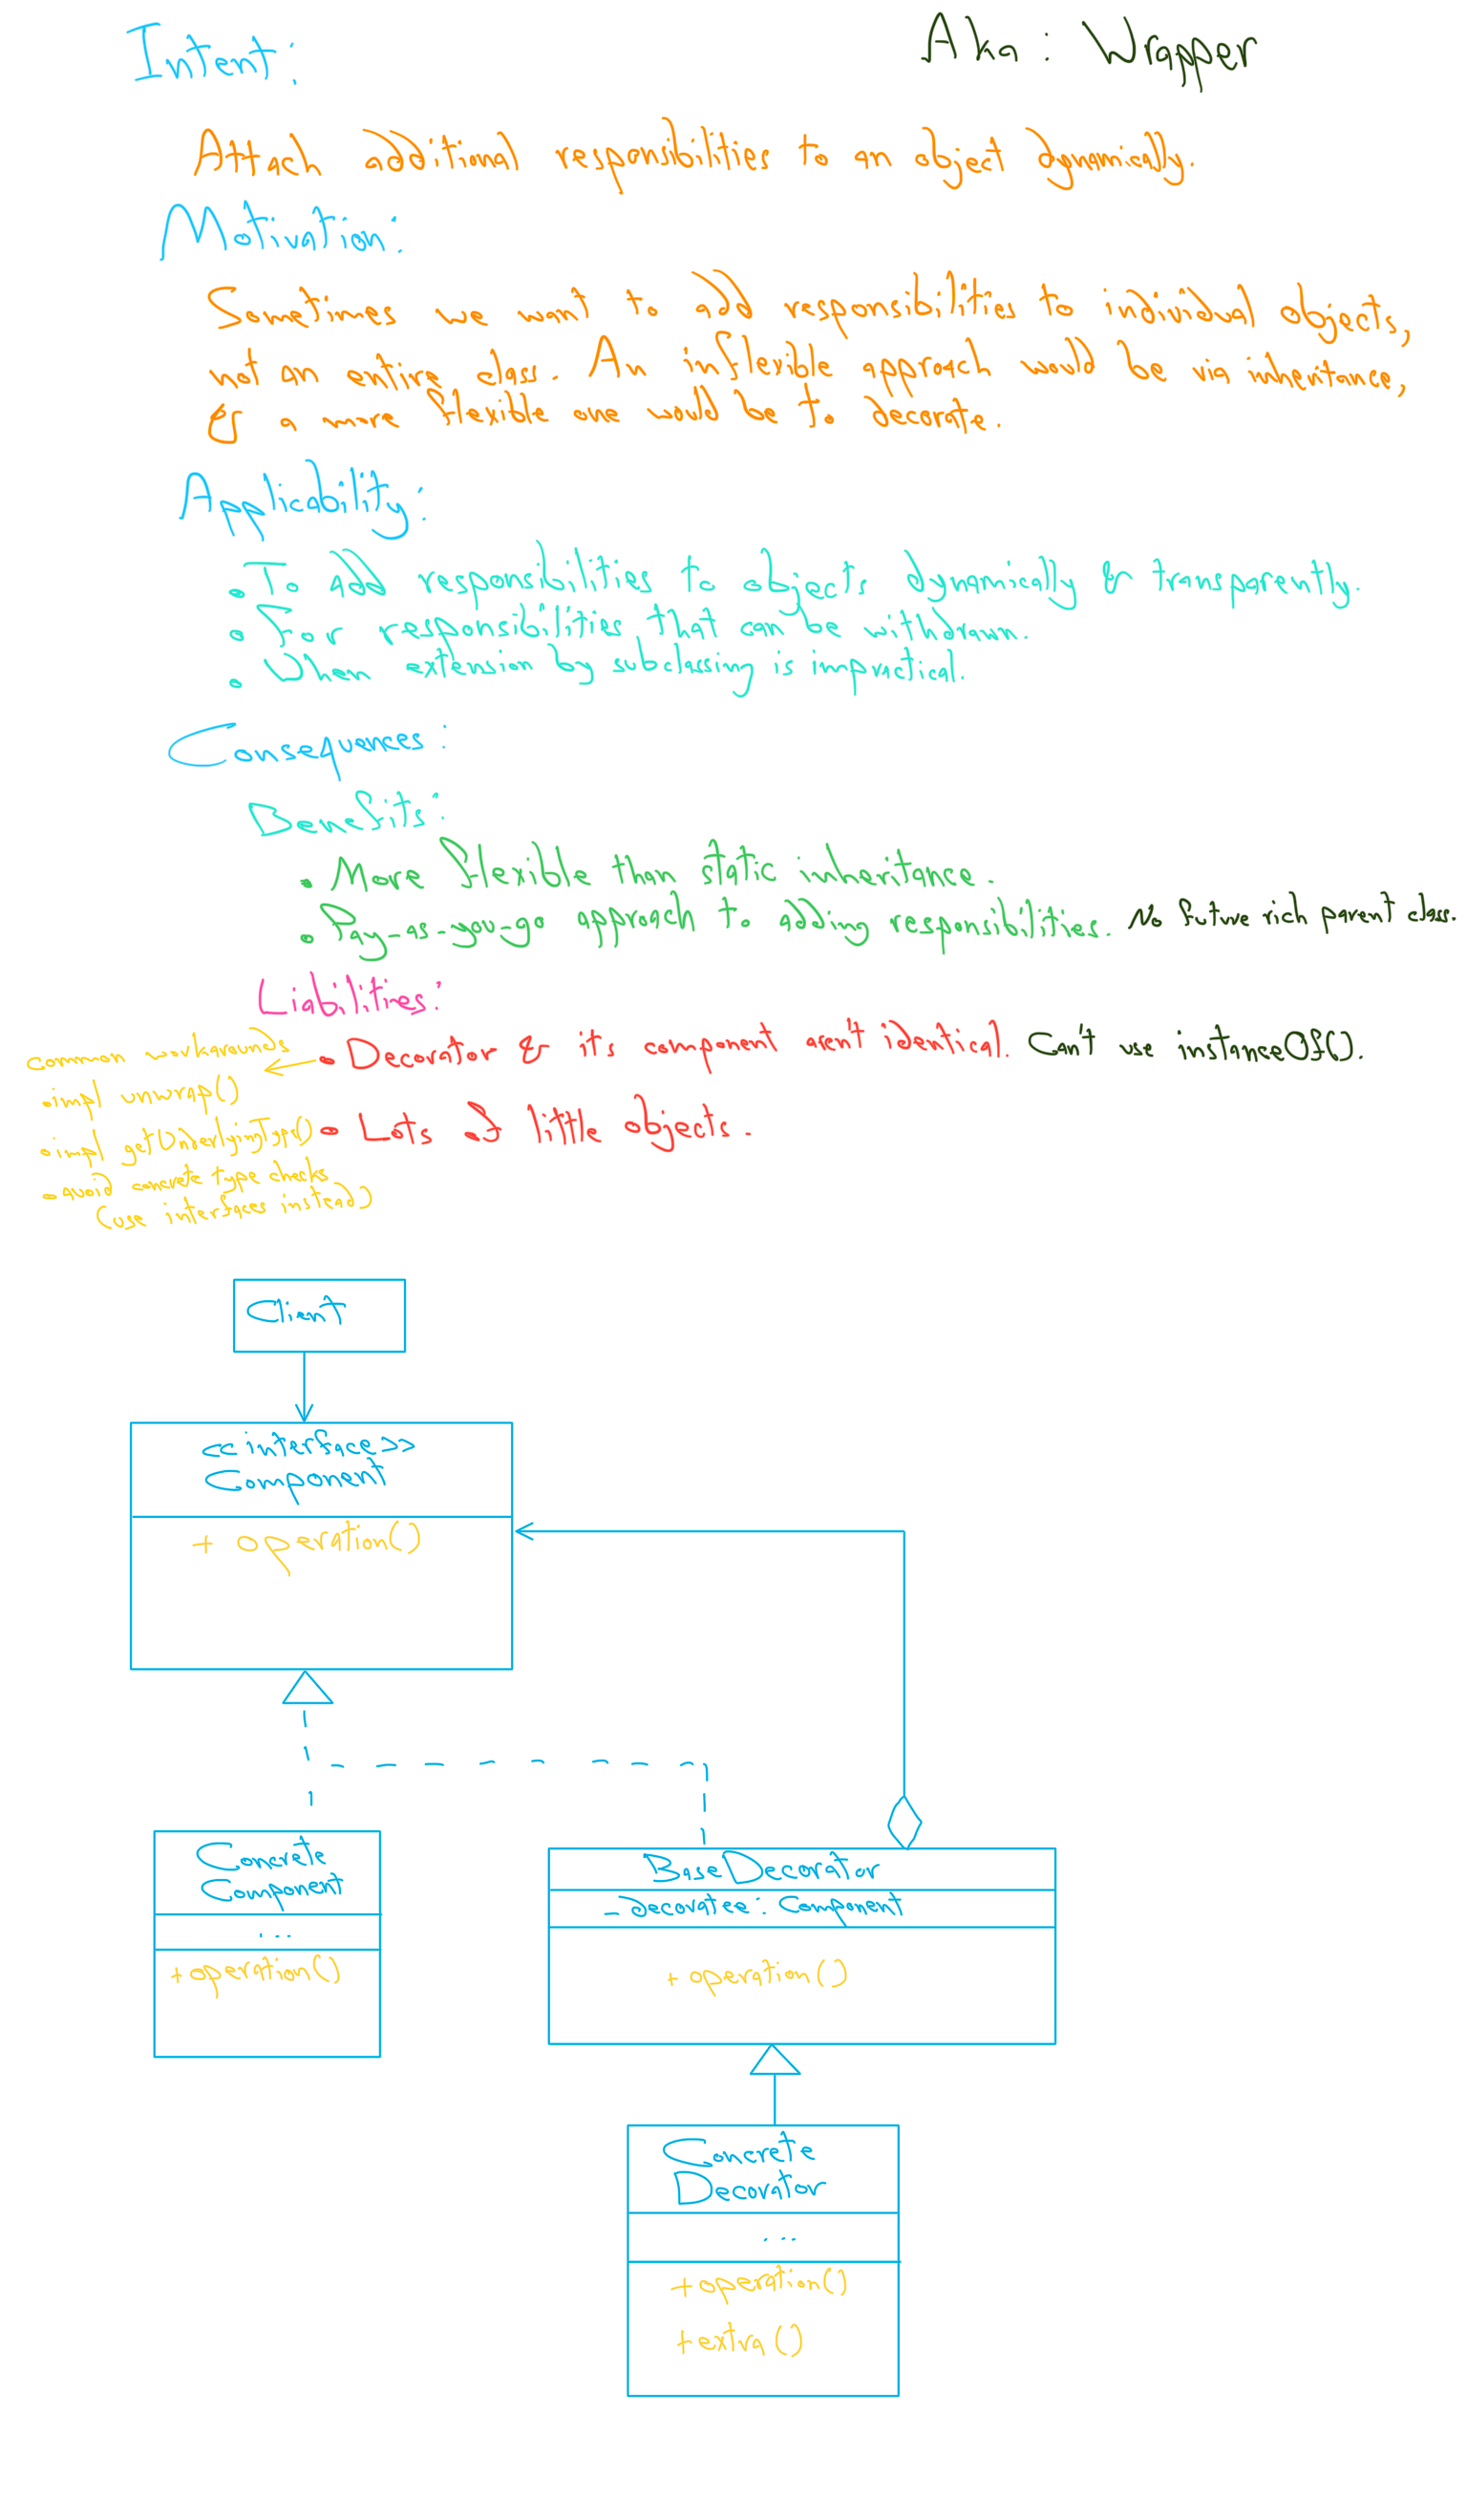 Intent:
Aka: Wrapper
Attach additional responsibilities to an object dynamically.
Motivation:
Sometimes we want to add responsibilities to individual objects,
not an entire class. An inflexible approach would be via inheritance,
& a more flexible one would be to decorate.
Applicability:
• To add responsibilities to objects dynamically & transparently.
• For responsibilities that can be withdrawn.
• When extension by subclassing is impractical.
Consequences:
Benefits:
• More flexible than static inheritance.
• Pay-as-you-go approach to adding responsibilities. No future rich parent class.
Liabilities:
• Decorator & its component aren't identical. Can't use instanceOf().
• Lots of little objects.
common workarounds
• impl unwrap()
• impl getUnderlyingType()
• avoid concrete type checks
(use interfaces instead)
Client
<<interface>>
Component
+ operation()
Concrete
Component
...
+operation()
BaseDecorator
- Decoratee: Component
+operation()
Concrete
Decorator
...
+operation()
+extra()